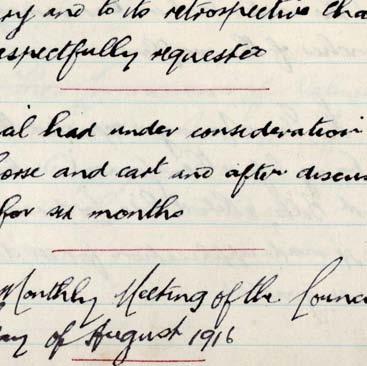 ry and to its retrospective cha
espectfully requested
ial had under consideration
horse and cart and after discus
for six months
Monthly Meeting of the Counc
ay of August 1916